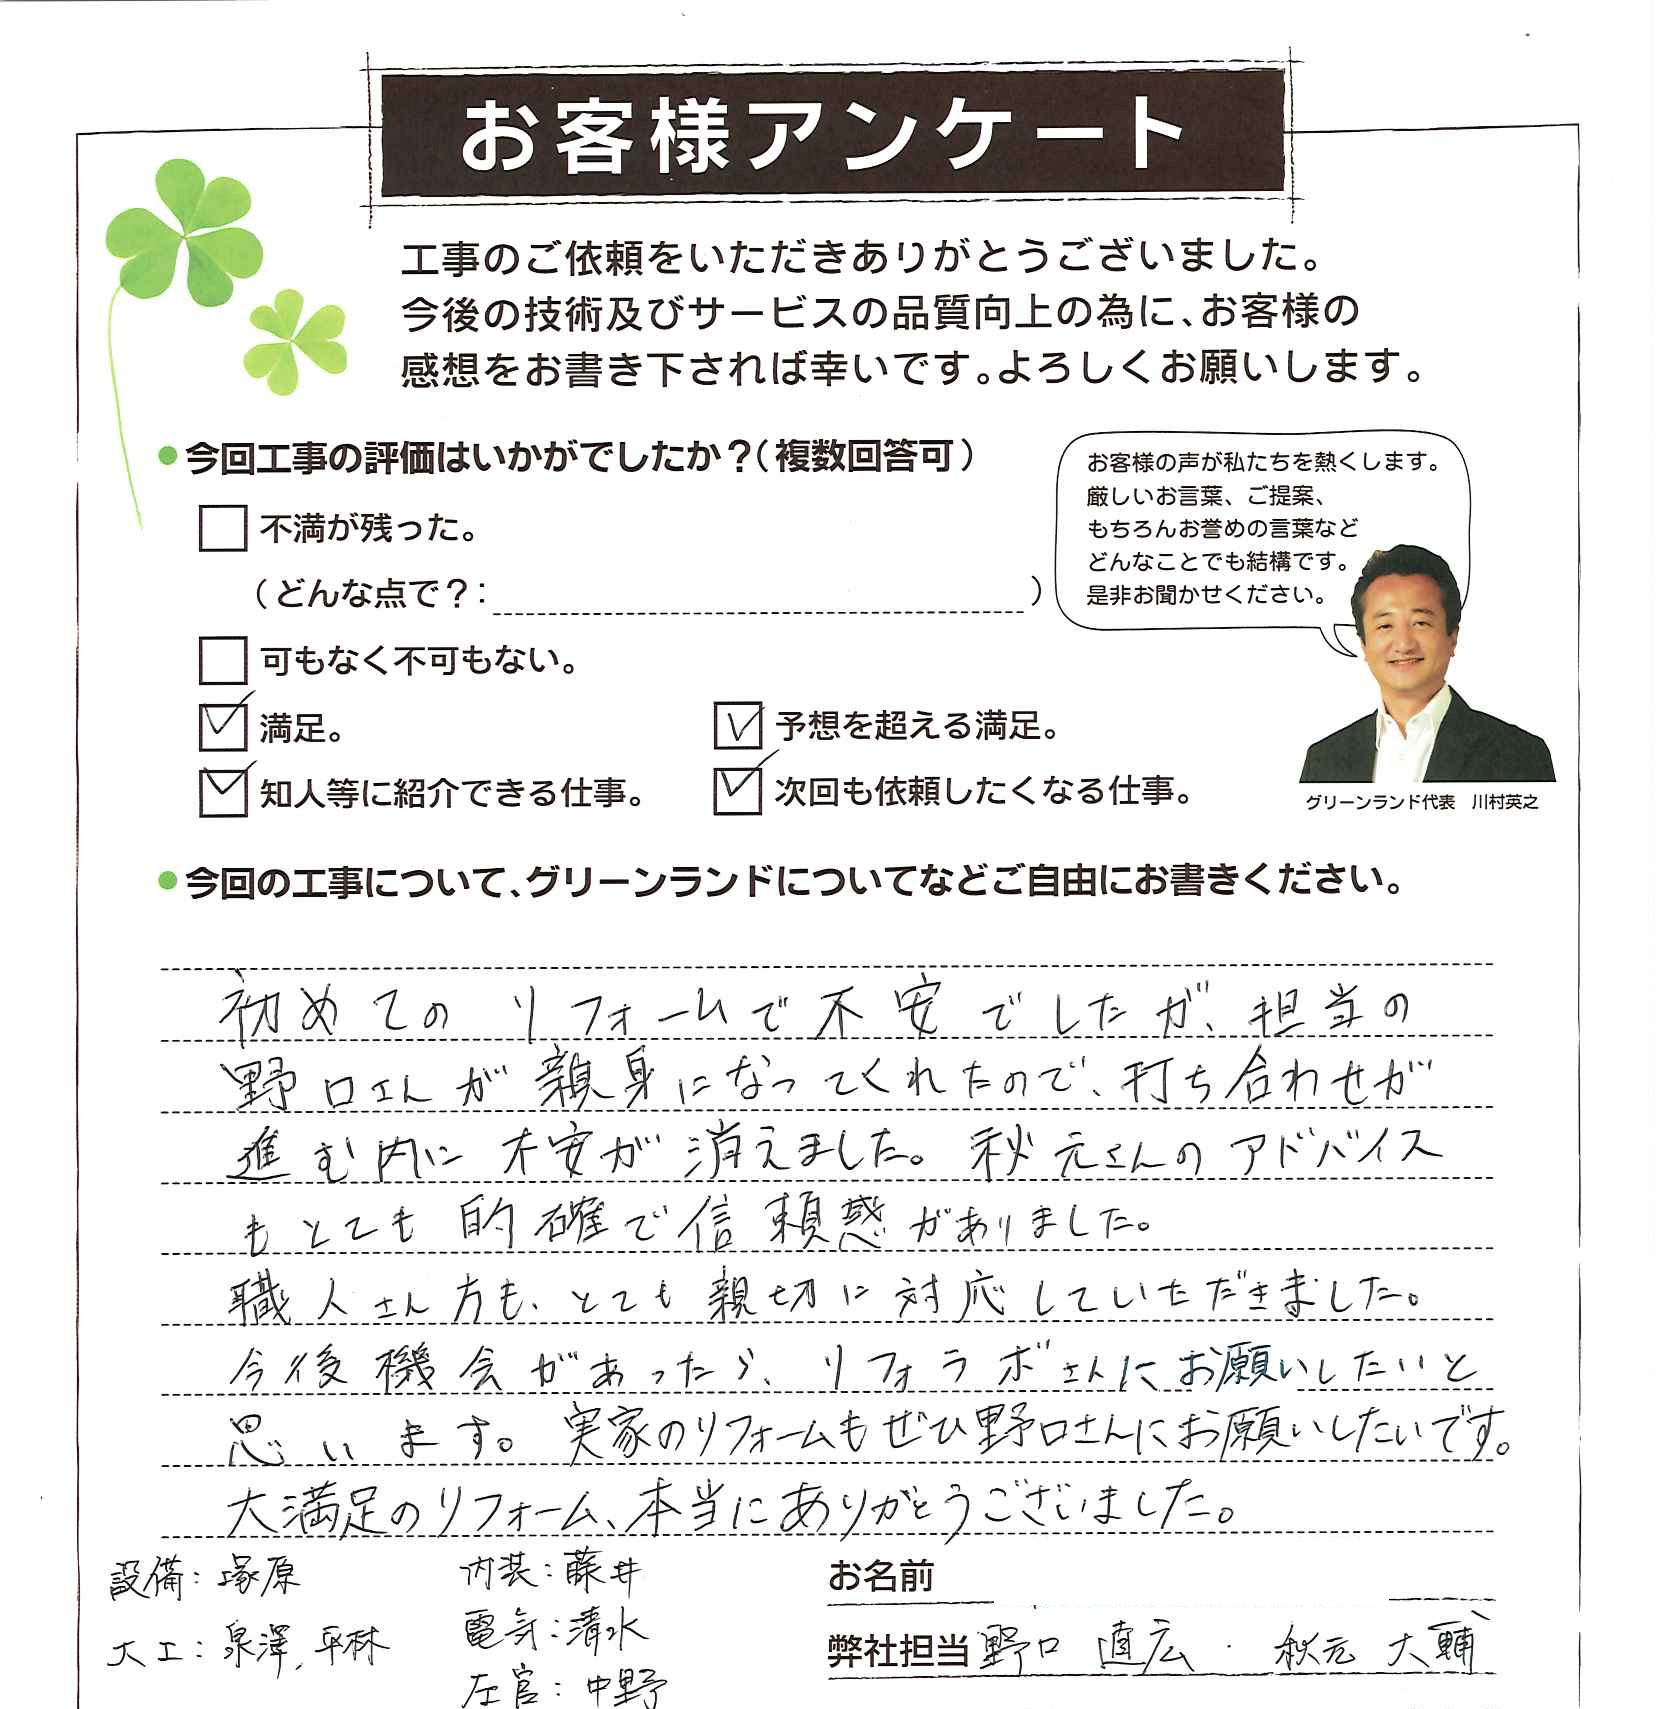 お客様アンケート
工事のご依頼をいただきありがとうございました。
今後の技術及びサービスの品質向上の為に、お客様の
感想をお書き下されば幸いです。よろしくお願いします。
●今回工事の評価はいかがでしたか？（複数回答可）
不満が残った。
（どんな点で？：　）
可もなく不可もない。
満足。
予想を超える満足。
知人等に紹介できる仕事。
次回も依頼したくなる仕事。
お客様の声が私たちを熱くします。
厳しいお言葉、ご提案、
もちろんお誉めの言葉など
どんなことでも結構です。
是非お聞かせください。
グリーンランド代表　川村英之
●今回の工事について、グリーンランドについてなどご自由にお書きください。
初めてのリフォームで不安でしたが、担当の
野口さんが親身になってくれたので、打ち合わせが
進む内に不安が消えました。秋元さんのアドバイス
もとても的確で信頼感がありました。
職人さん方も、とても親切に対応していただきました。
今後機会があったら、リフォラボさんにお願いしたいと
思います。実家のリフォームもぜひ野口さんにお願いしたいです。
大満足のリフォーム、本当にありがとうございました。
設備：塚原
大工：泉澤，平林
内装：藤井
電気：清水
左官：中野
お名前
弊社担当 野口 直広・秋元 大輔